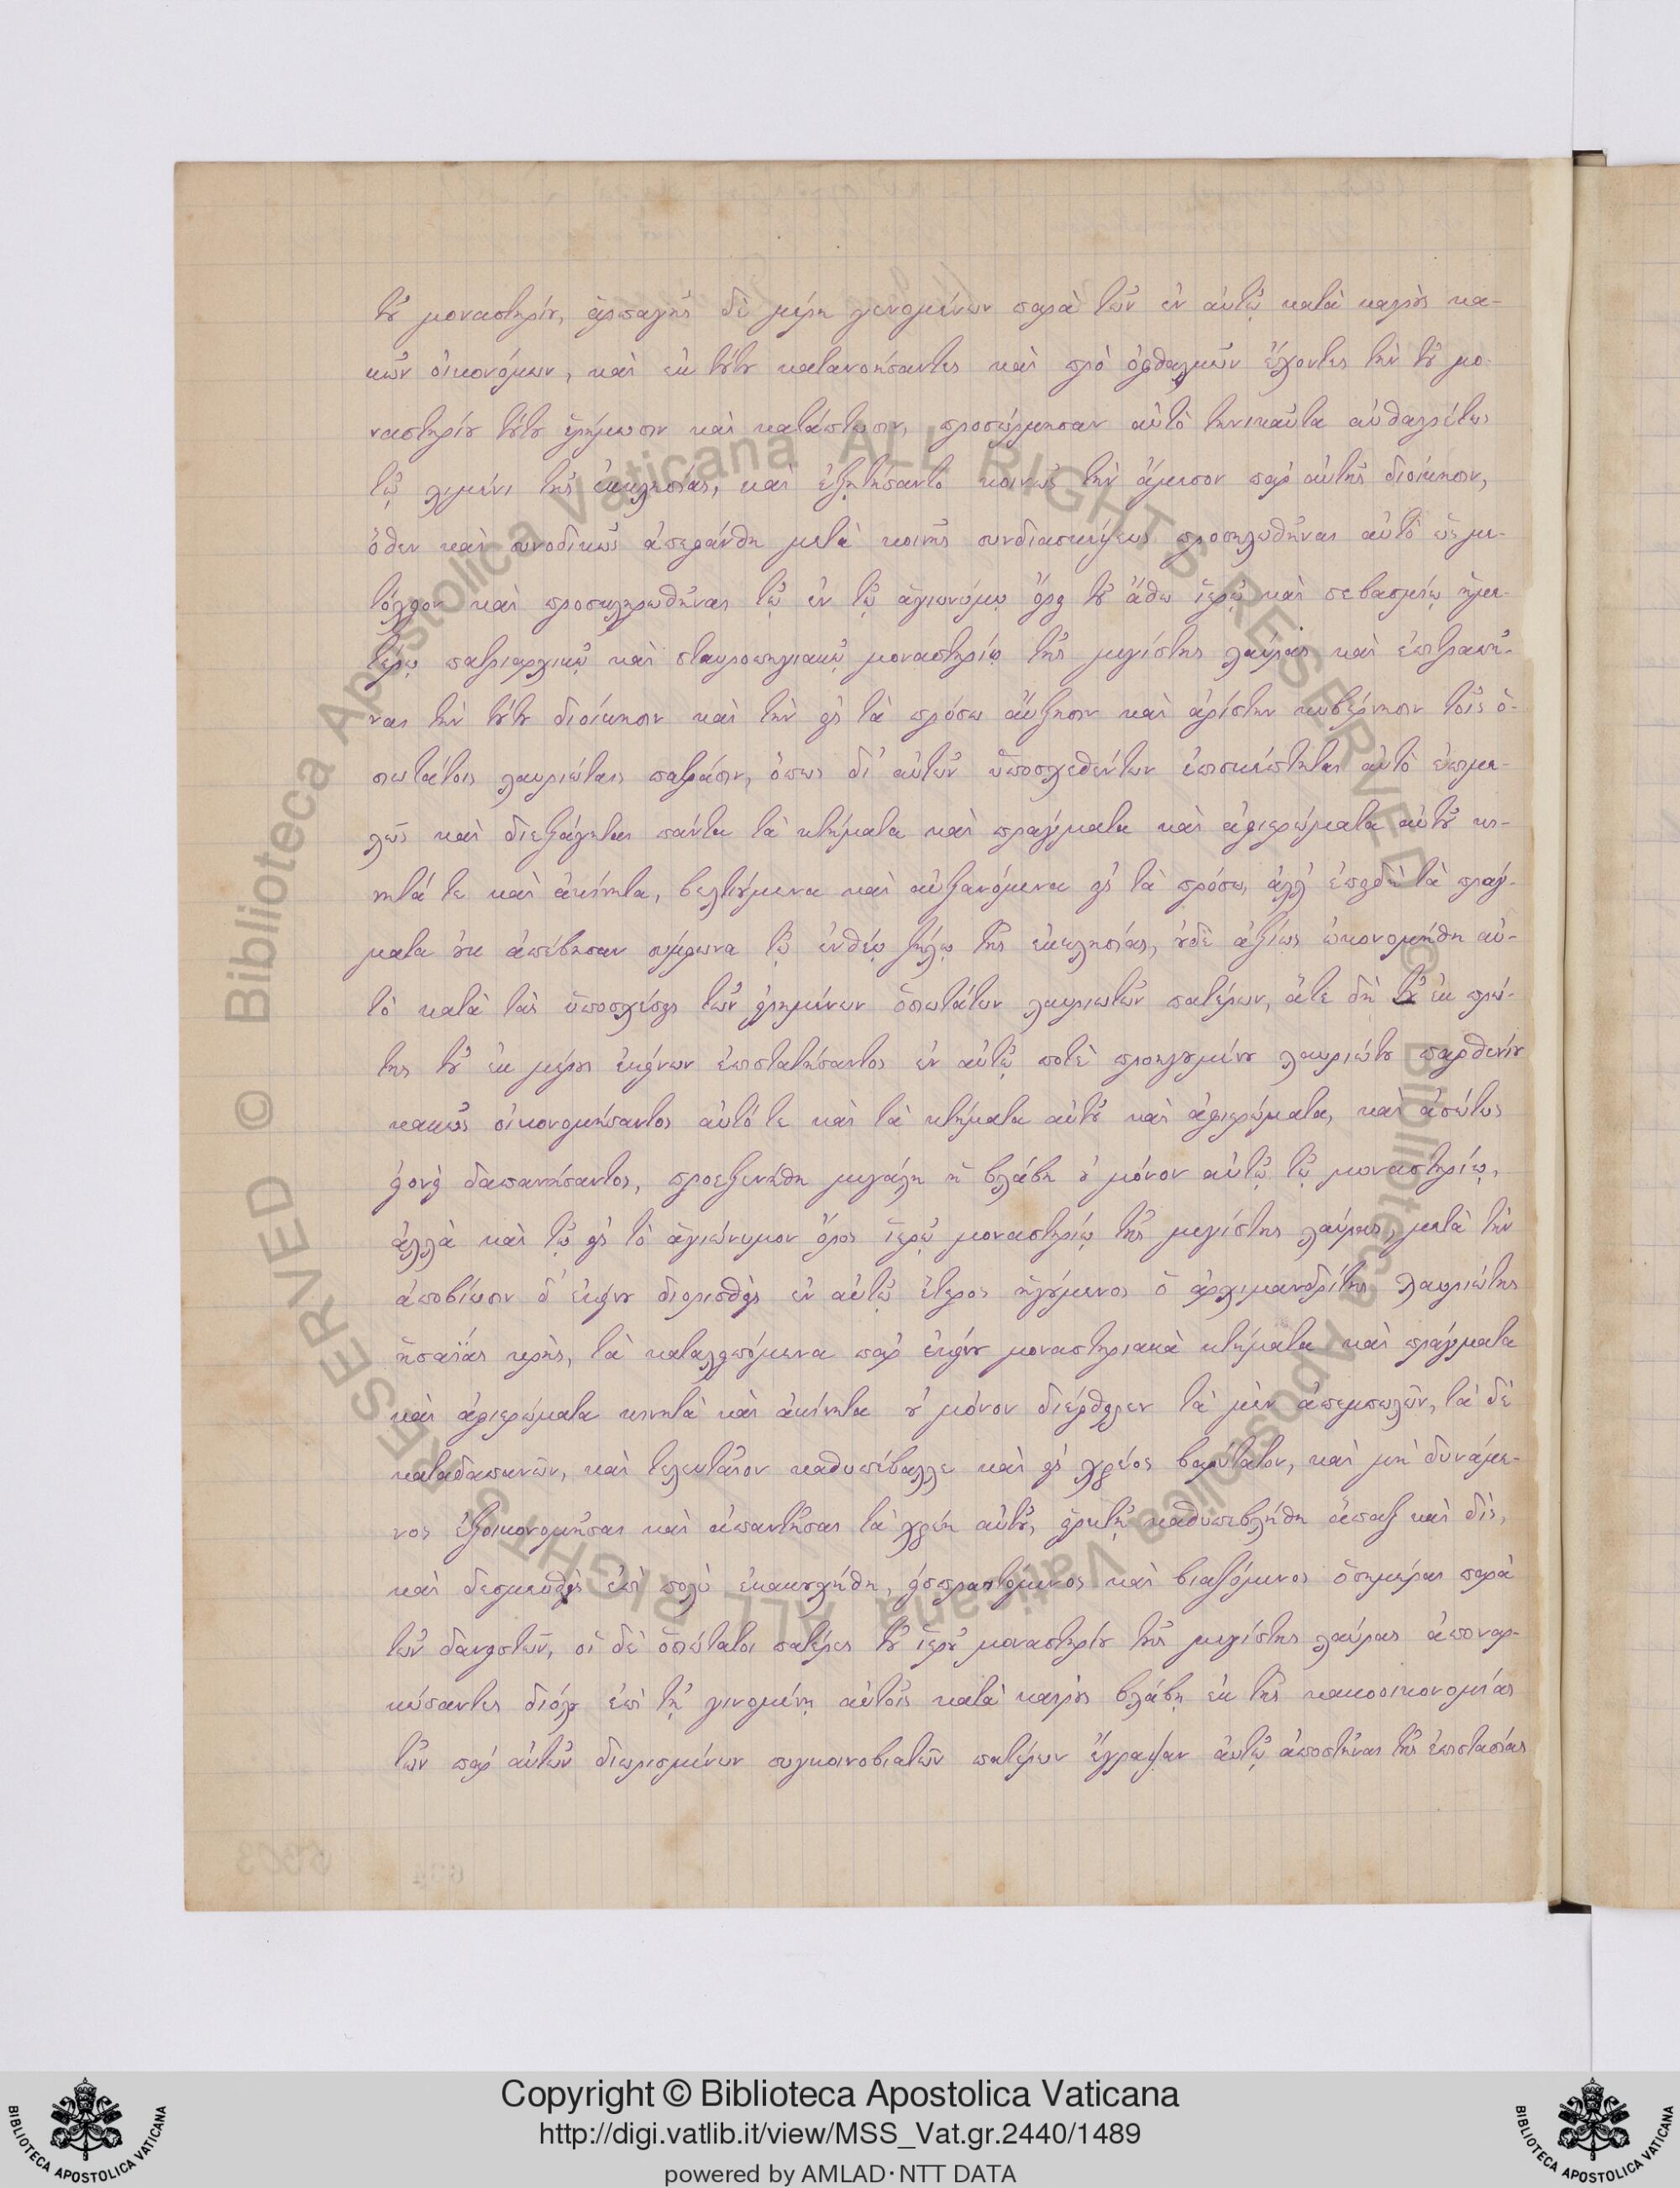 τοῦ μοναστηρίου, ἁρπαγῆς δὲ μέρη γενομένων παρὰ τῶν ἐν αὐτῷ κατὰ καιροὺς κα-
κῶν οἰκονόμων, καὶ ἐκ τούτου κατανοήσαντες καὶ πρὸ ὀφθαλμῶν ἔχοντες τὴν τοῦ μο-
ναστηρίου τούτου ἐρήμωσιν καὶ κατάπτωσιν, προσώρμησαν αὐτὸ τηνικαῦτα αὐθαιρέτως
τῷ λιμένι τῆς ἐκκλησίας, καὶ ἐζητήσαντο κοινῶς τὴν ἄμεσον παρ' αὐτῆς διοίκησιν,
ὅθεν καὶ συνοδικῶς ἀπεφάνθη μετὰ κοινῆς συνδιασκέψεως προσηλωθῆναι αὐτὸ ὡς με-
τόχιον καὶ προσκληρωθῆναι τῷ ἐν τῷ ἁγιωνύμῳ ὄρει τοῦ ἄθω ἱερῷ καὶ σεβασμίῳ ἡμε-
τέρῳ πατριαρχικῷ καὶ σταυροπηγιακῷ μοναστηρίῳ τῆς μεγίστης λαύρας καὶ ἐπιτραπῆ-
ναι τὴν τούτου διοίκησιν καὶ τὴν εἰς τὰ πρόσω αὔξησιν καὶ ἀρίστην κυβέρνησιν τοῖς ὁ-
σιωτάτοις λαυριώταις πατράσιν, ὅπως δι' αὐτῶν ὑποσχεθέντων ἐπισκέπτηται αὐτὸ ἐπιμε-
λῶς καὶ διεξάγηται πάντα τὰ κτήματα καὶ πράγματα καὶ ἀφιερώματα αὐτοῦ κι-
νητά τε καὶ ἀκίνητα, βελτιούμενα καὶ αὐξανόμενα εἰς τὰ πρόσω, ἀλλ' ἐπειδὴ τὰ πράγ-
ματα οὐκ ἀπέβησαν σύμφωνα τῷ ἐνθέῳ ζήλῳ τῆς ἐκκλησίας, οὐδὲ ἀξίως ᾠκονομήθη αὐ-
τὸ κατὰ τὰς ὑποσχέσεις τῶν εἰρημένων ὁσιωτάτων λαυριωτῶν πατέρων, ἅτε δὴ τοῦ ἐκ πρώ-
της τοῦ ἐκ μέρους ἐκείνων ἐπιστατήσαντος ἐν αὐτῷ ποτὲ προηγουμένου λαυριώτου παρθενίου
κακῶς οἰκονομήσαντος αὐτό τε καὶ τὰ κτήματα αὐτοῦ καὶ ἀφιερώματα, καὶ ἀσώτως
ὡσονεὶ δαπανήσαντος, προεξενήθη μεγάλη ἡ βλάβη οὐ μόνον αὐτῷ τῷ μοναστηρίῳ,
ἀλλὰ καὶ τῷ εἰς τὸ ἁγιώνυμον ὄρος ἱερῷ μοναστηρίῳ τῆς μεγίστης λαύρας, μετὰ τὴν
ἀποβίωσιν δ' ἐκείνου διορισθεὶς ἐν αὐτῷ ἕτερος ἡγούμενος ὁ ἀρχιμανδρίτης λαυριώτης
ἡσαΐας κρὴς, τὰ καταλειπόμενα παρ' ἐκείνου μοναστηριακὰ κτήματα καὶ πράγματα
καὶ ἀφιερώματα κινητὰ καὶ ἀκίνητα οὐ μόνον διέφθειρεν τὰ μὲν ἀπεμπωλῶν, τὰ δὲ
καταδαπανῶν, καὶ τελευταῖον καθυπέβαλλε καὶ εἰς χρέος βαρύτατον, καὶ μὴ δυνάμε-
νος ἐξοικονομῆσαι καὶ ἀπαντῆσαι τὰ χρέη αὐτοῦ, εἱρκτῇ καθυπεβλήθη ἅπαξ καὶ δὶς,
καὶ δεσμευθεὶς ἐπὶ πολὺ ἐκακουχήθη, εἰσπραττόμενος καὶ βιαζόμενος ὁσημέραι παρὰ
τῶν δανειστῶν, οἱ δὲ ὁσιώτατοι πατέρες τοῦ ἱεροῦ μοναστηρίου τῆς μεγίστης λαύρας ἀποναρ-
κώσαντες διόλου ἐπὶ τῇ γινομένῃ αὐτοῖς κατὰ καιροὺς βλάβῃ ἐκ τῆς κακοοικονομίας
τῶν παρ' αὐτῶν διωρισμένων συγκοινοβιατῶν πατέρων ἔγραψαν αὐτῷ ἀποστῆναι τῆς ἐπιστασίας
Copyright © Biblioteca Apostolica Vaticana
http://digi.vatlib.it/view/MSS_Vat.gr.2440/1489
powered by AMLAD·NTT DATA